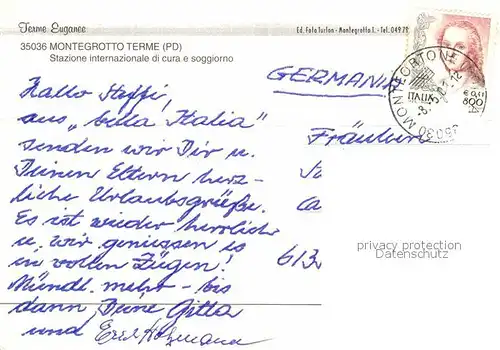 Terme Euganee
35036 MONTEGROTTO TERME (PD)
Stazione internazionale di cura e soggiorno
Ed. Foto Turfon - Montegrotto T. - Tel. 049 79
GERMANIA
ITALIA
€ 0,41
800
Hallo Steffi,
aus „bella Italia"
senden wir Dir u.
Deinen Eltern herz-
liche Urlaubsgrüße.
Es ist wieder herrlich
u. wir geniessen es
in vollen Zügen!
Mündl. mehr - bis
dann, Deine Gitta
und
Fräulein
613
privacy protection
Datenschutz